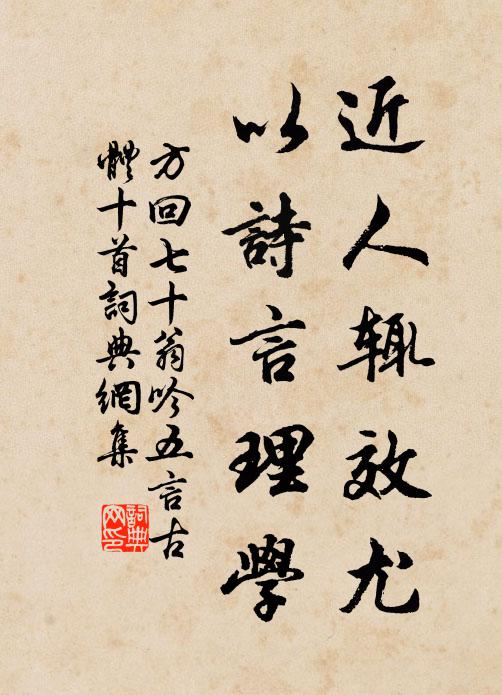 近人辄效尤
以詩言理學
方回七十翁吟五言古
體十首詞典網集
詞典
网印